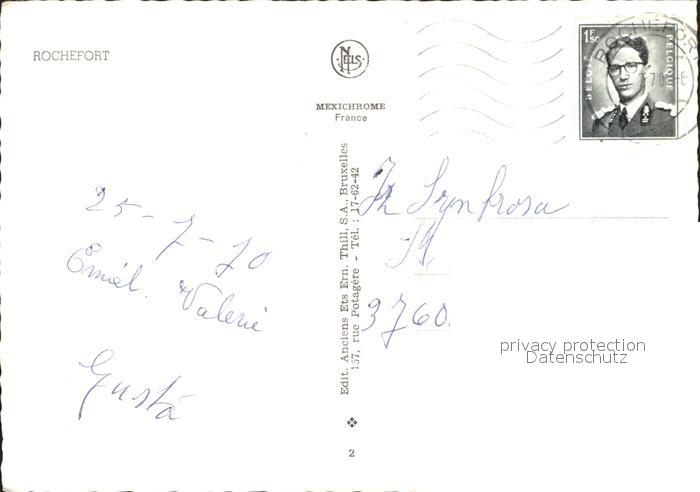 ROCHEFORT
NELS
MEXICHROME
France
1F50
BELGIË BELGIQUE
ROCHEFORT
25-7-70
Emiel. Valerie
Gusta
Edit. Anciens Ets Ern. Thill, S.A., Bruxelles
157, rue Potagère - Tél. : 17-62-42
3760.
privacy protection
Datenschutz
2